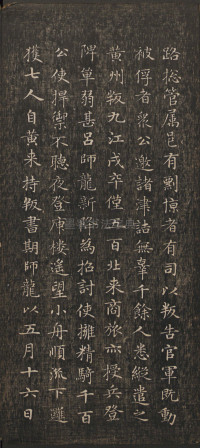 路總管属邑有剽悍者有司以叛告官軍既動
被俘者衆公邀諸津詰無辜千餘人悉縱遣之
黄州叛九江戍卒僅五百北来商旅亦授兵登
陴單弱甚吕師龍新降為招討使擁精騎千百
公使捍禦不聽夜登庾樓遥望小舟順流下邏
獲七人自黄来持叛書期師龍以五月十六日